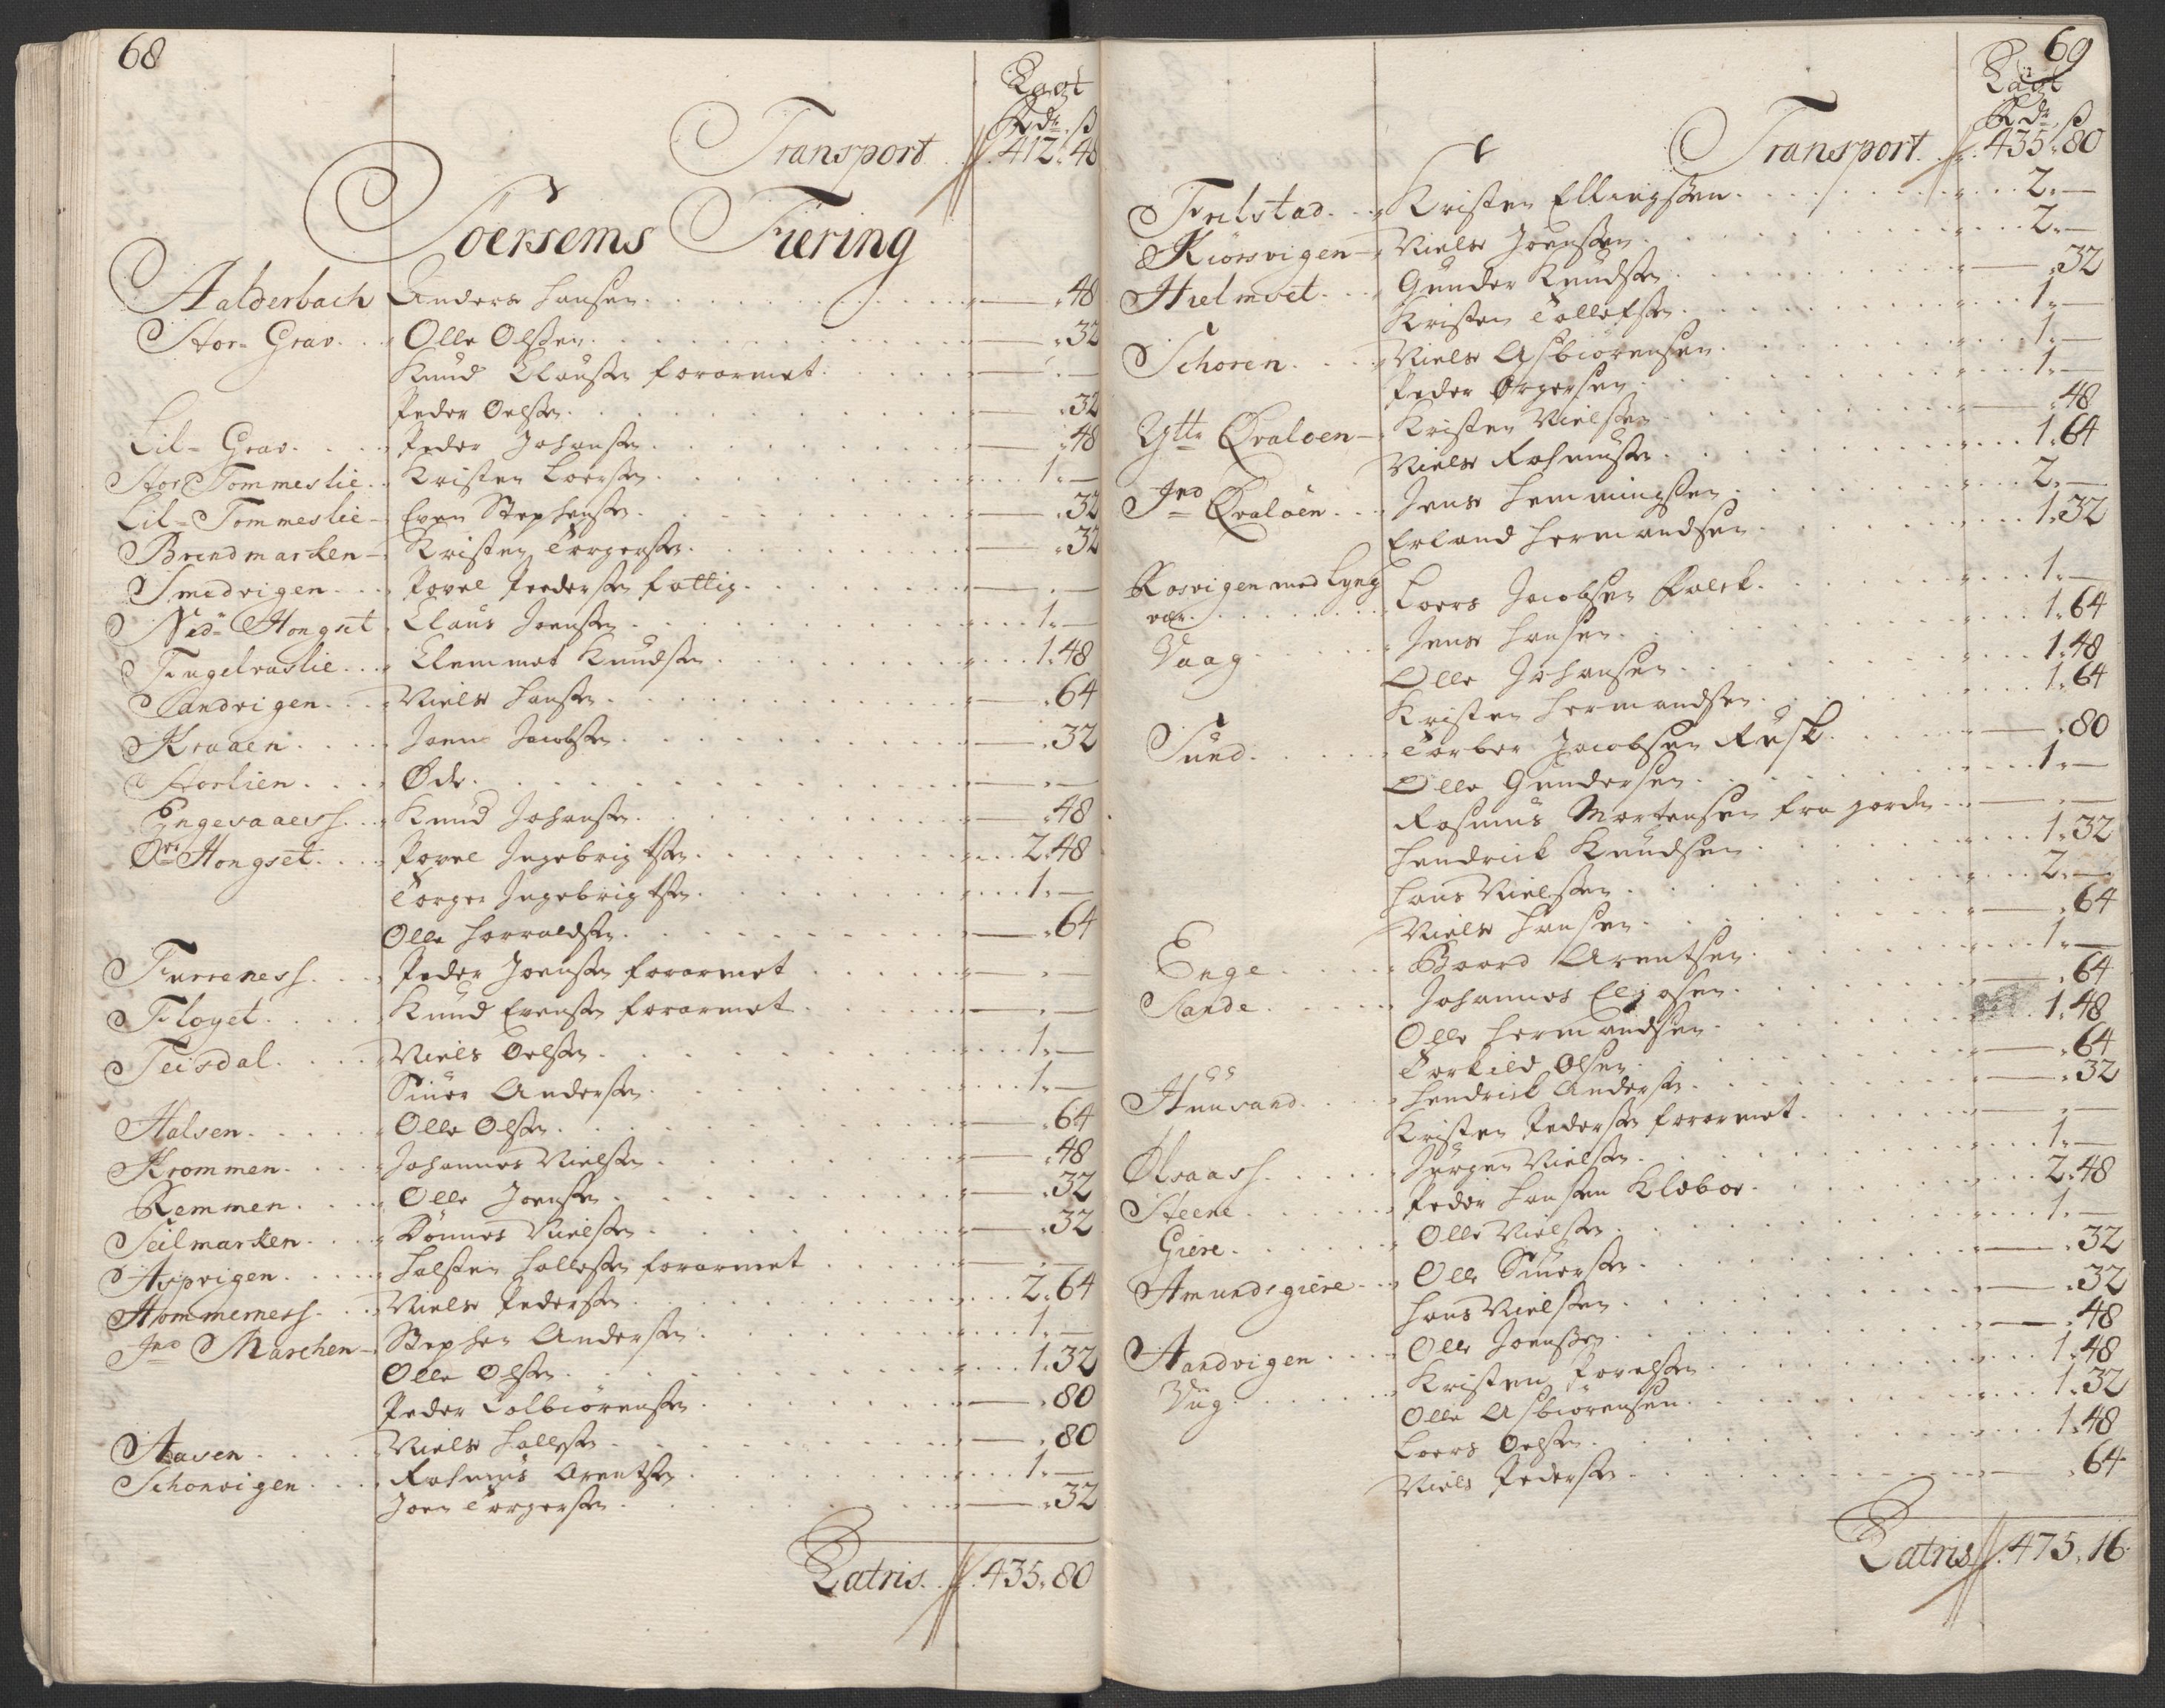 68
Lagt
Rdr. ß
Transport 412.48
Soersems Fiering
Aalderbach Anders Hansen 48
Stor-Grav Olle Olsen 32
Knud Clausen forarmet —
Peder Oelsen 32
Lil-Grav Peder Johansen 48
Stor Tommeslie Kristen Loersen 1.—
Lil-Tommeslie Even Stephensen 32
Brendmarken Kristen Torgersen 32
Smedvigen Povel Peedersen fattig —
Nedr Hongset Claus Joensen 1.—
Fugelvaslie Clemmet Knudsen 1.48
Sandvigen Niels Hansen 64
Kraaen Joen Jacobsen 32
Storlien Øde —
Engevaaess Knud Johansen 48
Øvr Hongset Povel Ingebrigtsen 2.48
Torger Ingebrigtsen 1.—
Olle Harraldsen 64
Furreness Peder Joensen forarmet —
Floyet Knud Evensen forarmet —
Teisdal Niels Oelsen 1.—
Siuer Andersen 1.—
Halsen Olle Olsen 64
Krommen Johannes Nielsen 48
Remmen Olle Joensen 32
Seilmarken Tønnes Nielsen 32
Aspvigen Halsten Hallesen forarmet —
Hommerness Niels Pedersen 2.64
Ind Marchen Stephen Andersen 1.—
Olle Olsen 1.32
Peder Tolbiørensen 80
Aaven Niels Hallesen 80
Schonvigen Rasmus Arentsen 1.—
Joen Torgersen 32
Latris 435.80
69
Lagt
Rdr. ß
Transport 435.80
Frelstad Kristen Ellingsen 2.—
Kiörsvigen Niels Joensen 2.—
Hielmset Gunder Knudsen 32
Kristen Tollefsen 1.—
Schoren Niels Asbiörensen 1.—
Peder Torgersen 1.—
Yttr Qvaløen Kristen Nielsen 48
Niels Rasmusen 1.64
Ind Qvaløen Jens Hemmingsen 2.—
Erland Hermandsen 1.32
Rosvigen med Lyng
vær Loers Jacobsen Falck 1.—
Vaag Jens Hansen 1.64
Olle Johansen 1.48
Kristen Hermandsen 1.64
Sund Torber Jacobsen Rusk 80
Olle Gundersen 1.—
Rasmus Mortensen fra gorden —
Hendrick Knudsen 1.32
Hans Nielsen 2.—
Niels Hansen 64
Enge Baard Arentsen 1.—
Sande Johannes Eliasen 64
Olle Hermandsen 1.48
Torkild Olsen 64
Huusand Hendrick Andersen 32
Kristen Pedersen forarmet —
Asaass Jørgen Nielsen 1.—
Steene Peder Hansen Kleboe 2.48
Giere Olle Nielsen 1.—
Amundsgiere Olle Siuersen 32
Hans Nielsen 32
Aandvigen Olle Joensen 48
Vug Kristen Povelsen 1.48
Olle Asbiørensen 1.32
Loers Oelsen 1.48
Niels Pedersen 64
Latris 475.16